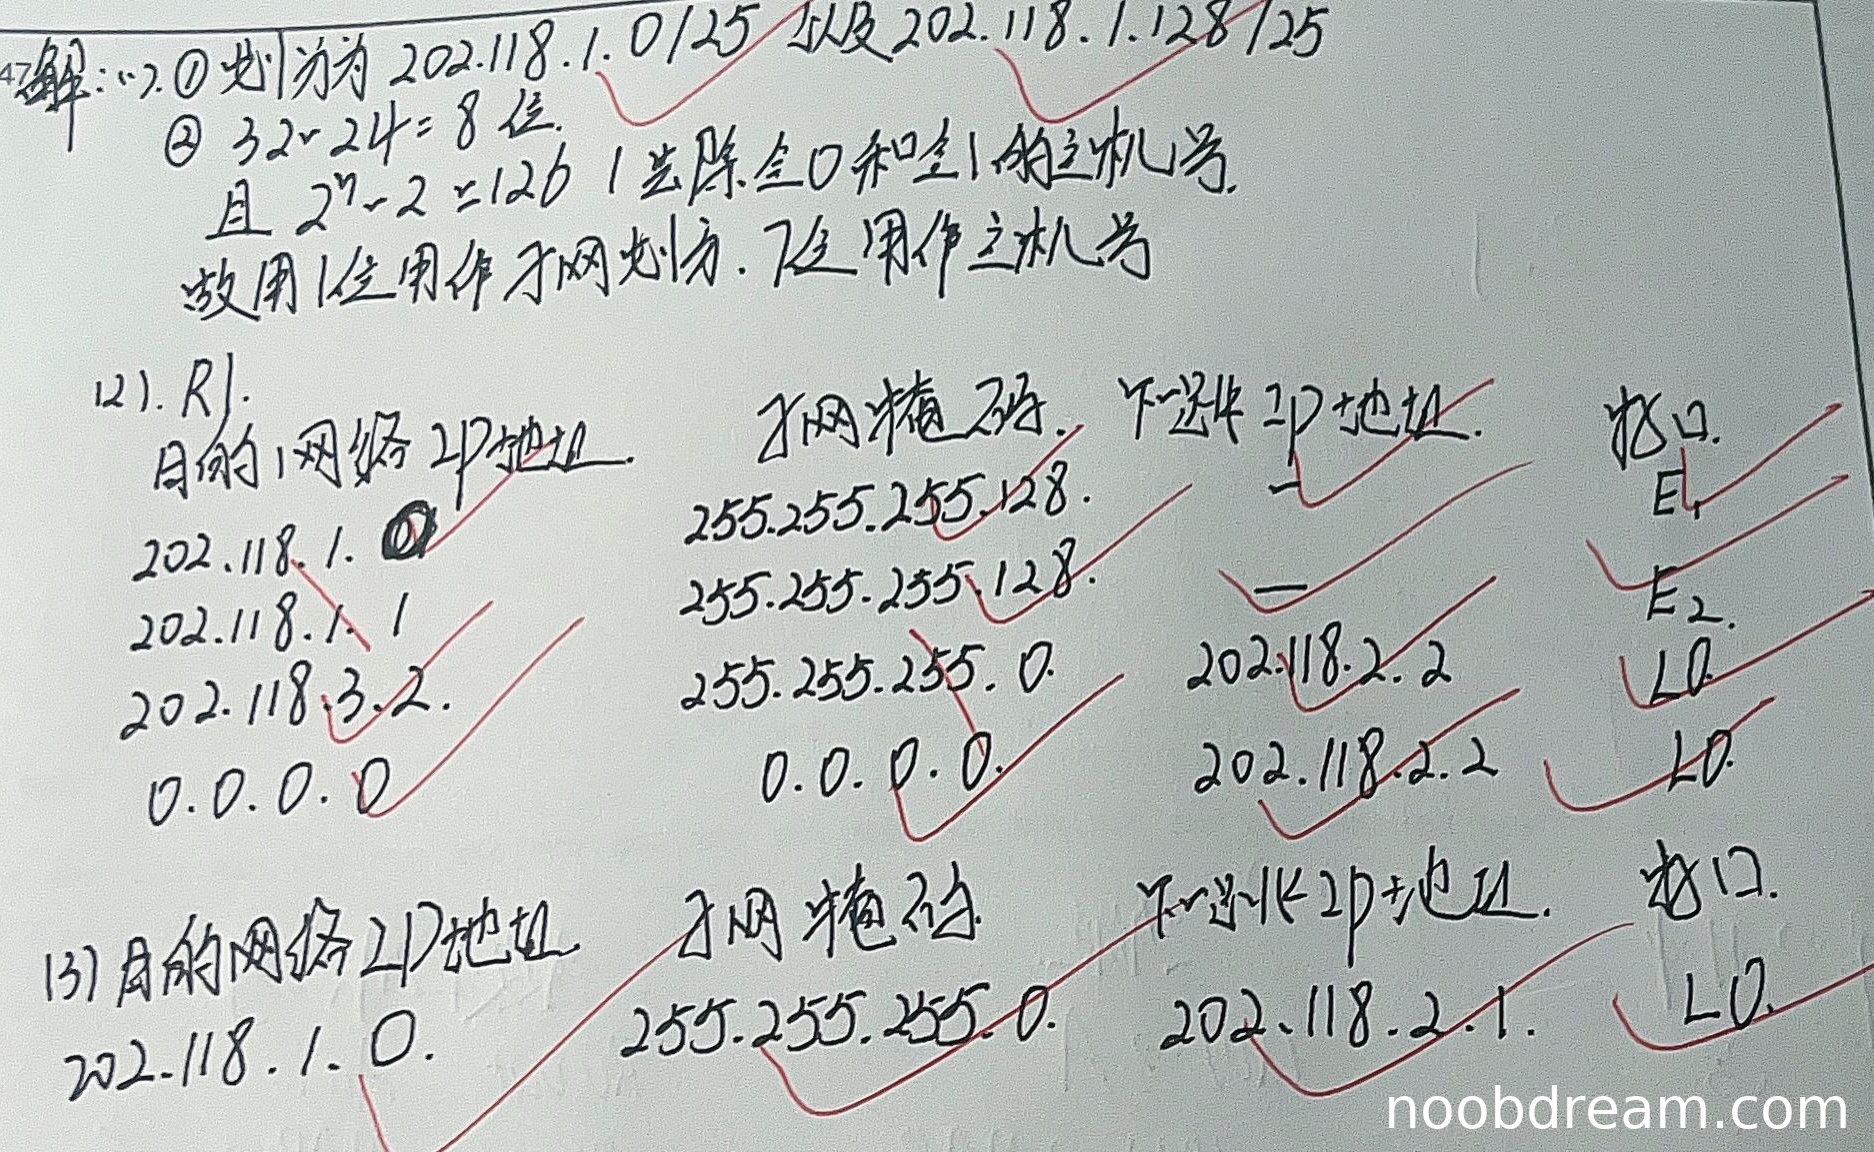 47解:(1).①划分为 202.118.1.0/25 以及 202.118.1.128/25
② 32-24=8位.
且 2⁷-2=126 (去除全0和全1的主机号.
故用1位用作子网划分.7位用作主机号
(2).R1.
目的网络IP地址. 子网掩码. 下一跳IP地址. 接口.
202.118.1.0 255.255.255.128. - E1
202.118.1.1 255.255.255.128. — E2.
202.118.3.2. 255.255.255.0. 202.118.2.2 L0.
0.0.0.0 0.0.0.0. 202.118.2.2 L0.
(3)目的网络IP地址. 子网掩码. 下一跳IP地址. 接口.
202.118.1.0. 255.255.255.0. 202.118.2.1. L0.
noobdream.com